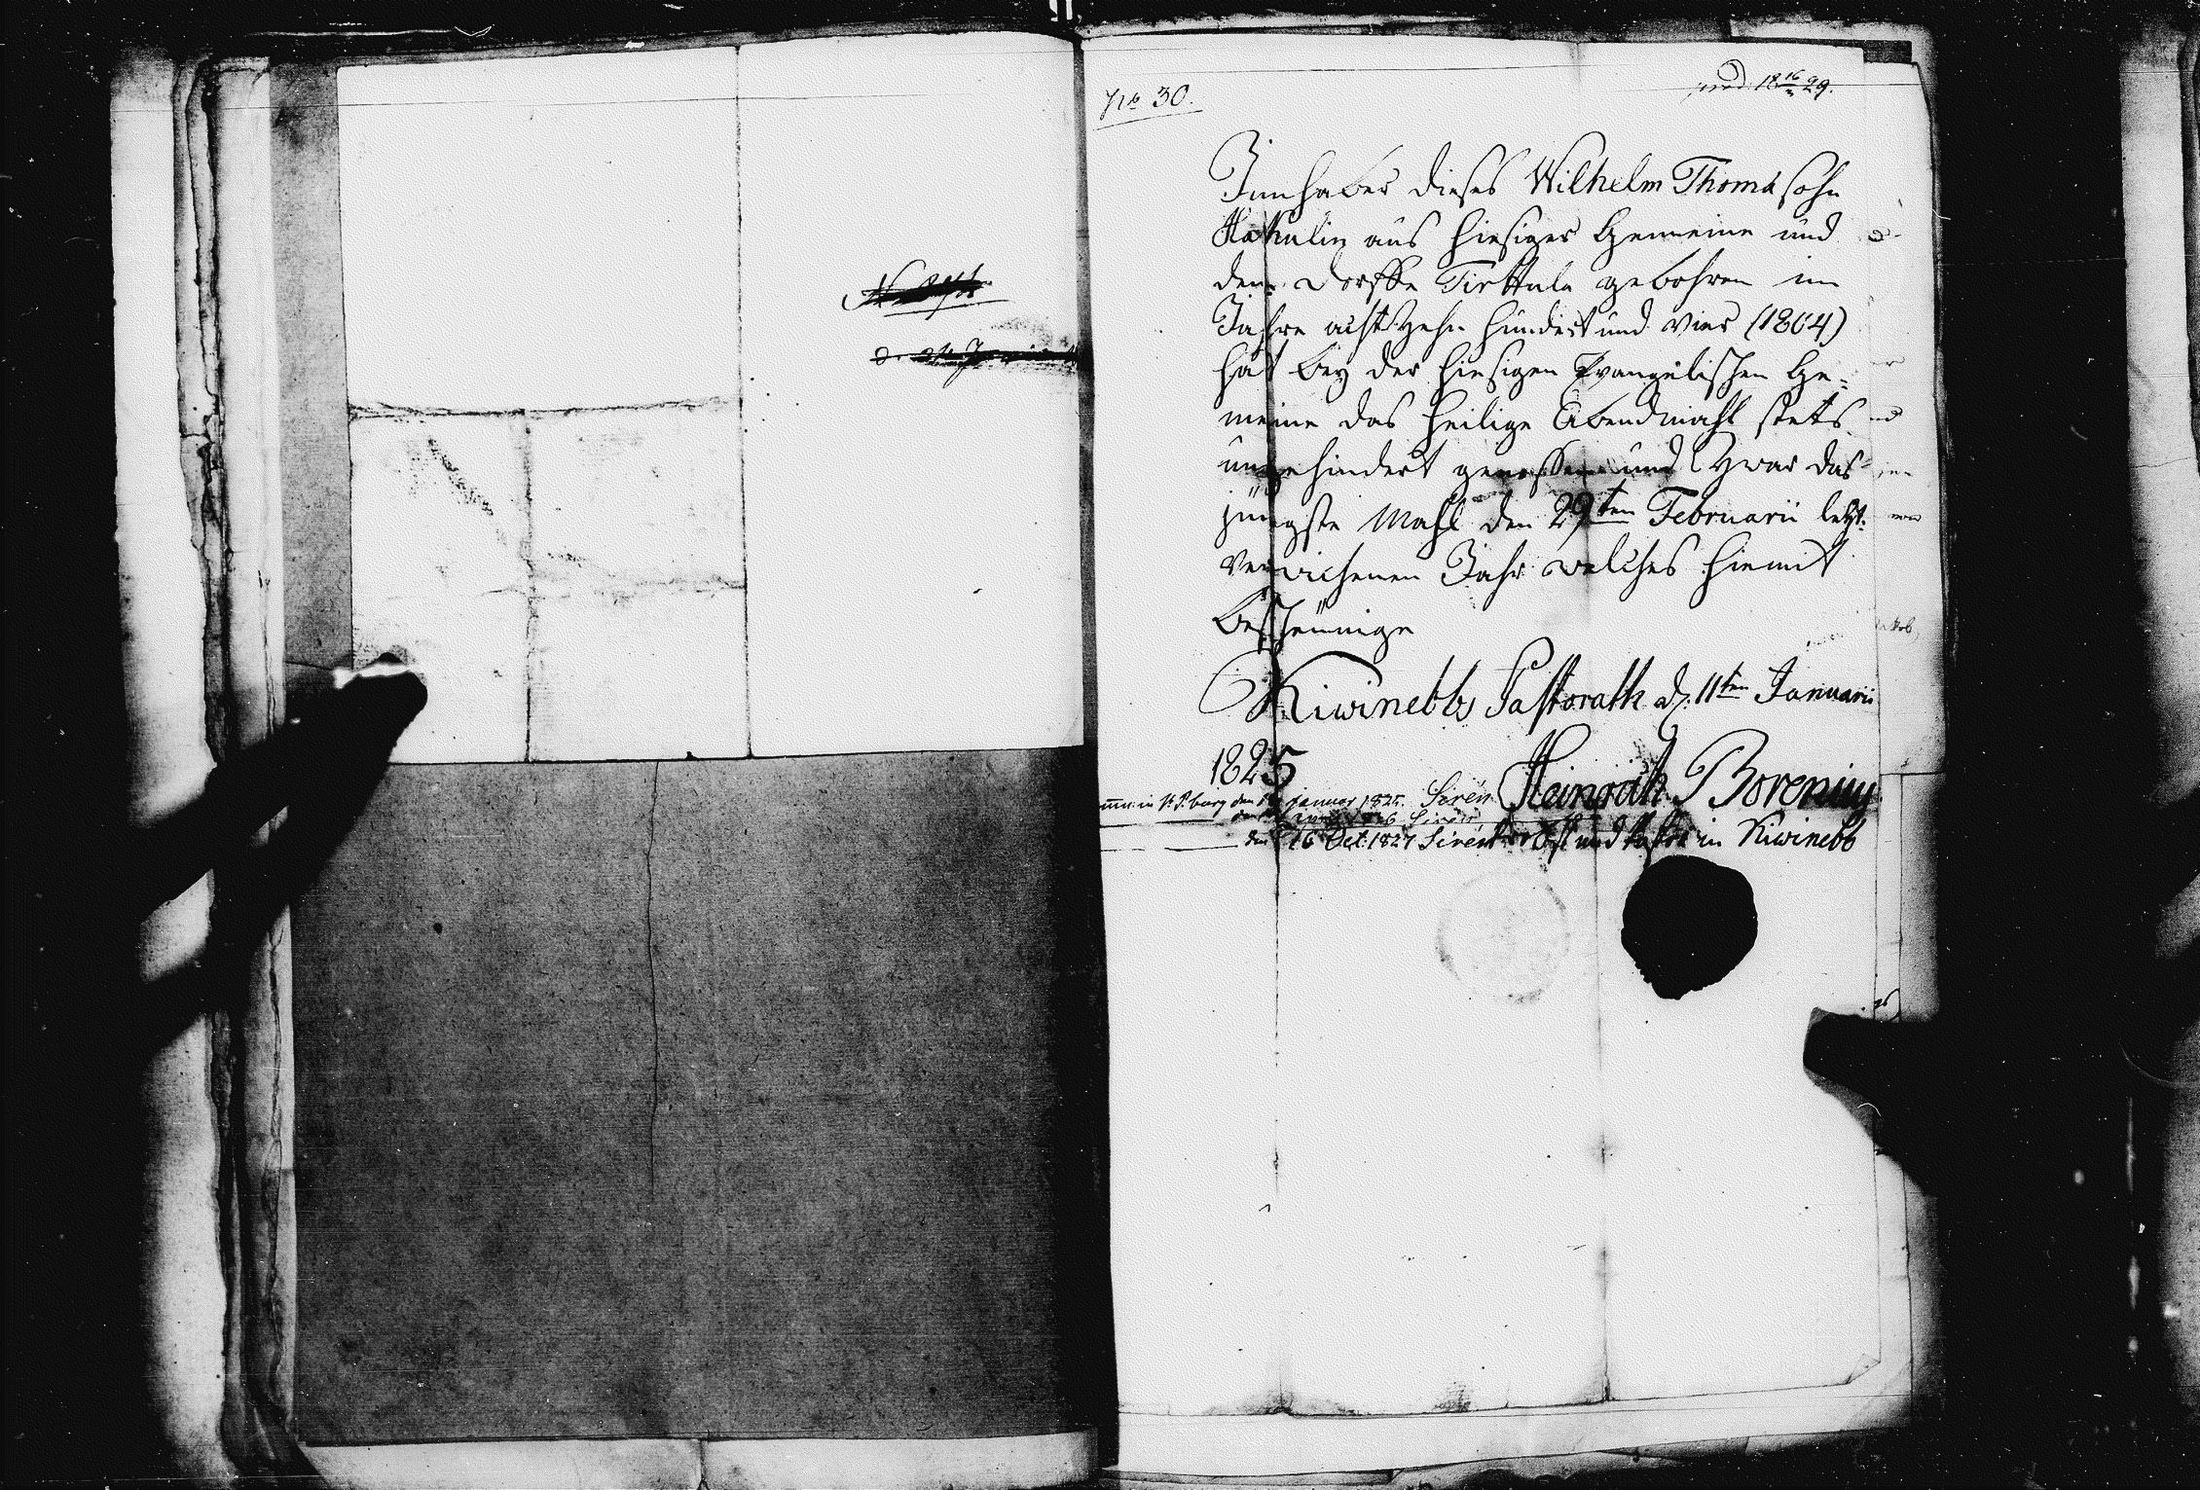 No 30.
prod. 18 16/2 29.
Innhaber dieses Wilhelm Thomas sohn
Hakulin aus hiesiger Gemeine und
dem Dorffe Tirkkula gebohren im
Jahre acht Zehn hundert und Vier (1804)
hat bey der hiesigen Evangelischen Ge=
meine das heilige Abendmahl stets
ungehindert genossen und Zwar das
jüngste Mahl den 29ten Februarii letzt
verwichenen Jahr welches hiemit
bescheinige
Kiwinebbs Pastorath d. 11ten Januarii
1825
Heinrich Borenius
Probst und Pastor in Kiwinebb
in St. P.burg den Januar 1825. Sirén
1826 Sirén
den 16 Oct. 1827 Sirén